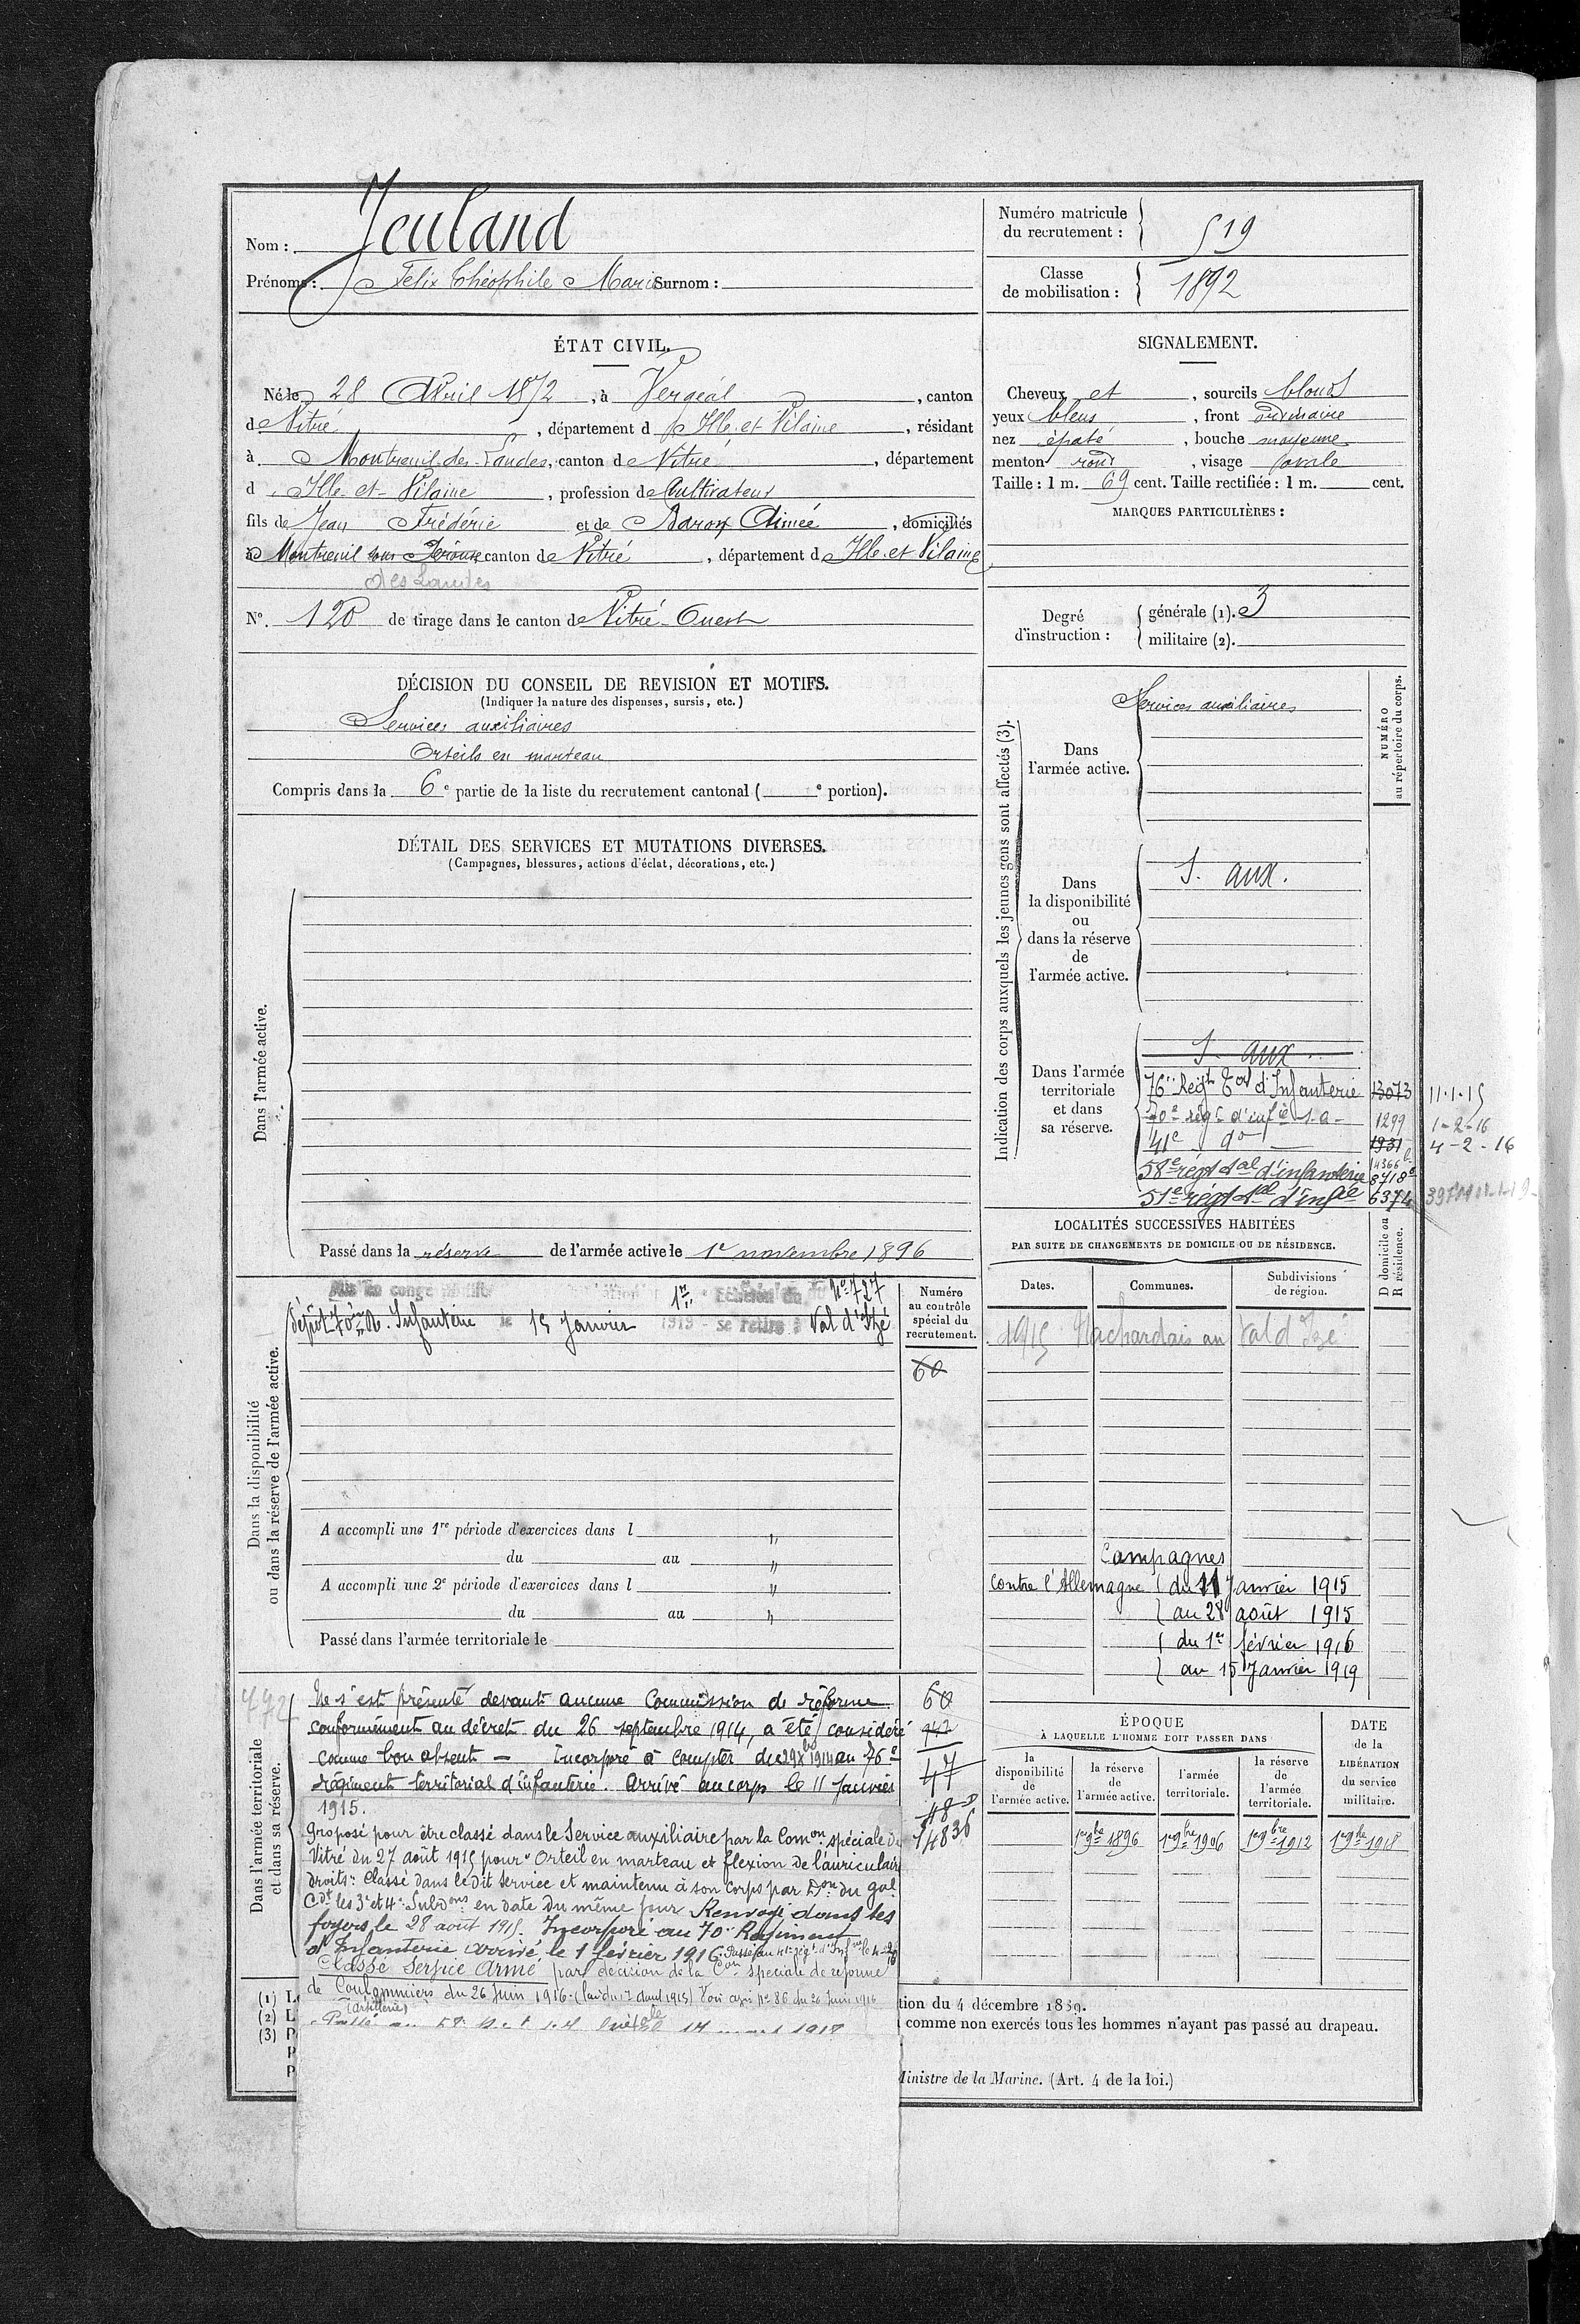 Nom : Jeuland
Prénoms : Felix Théophile Marie Surnom :
ÉTAT CIVIL.
Né le 28 Avril 1872, à Vergeal, canton
d Vitré, département d Ille et Vilaine, résidant
à Montreuil des Landes, canton de Vitré, département
d Ille et Vilaine, profession de Cultivateur
fils de Jean Frédéric et de Baron Aimée, domiciliés
à Montreuil sous Pérouse canton de Vitré, département d Ille et Vilaine
des Landes
No. 120 de tirage dans le canton de Vitré-Ouest
DÉCISION DU CONSEIL DE REVISION ET MOTIFS.
(Indiquer la nature des dispenses, sursis, etc.)
Services auxiliaires
Orteils en marteau
Compris dans la 6e partie de la liste du recrutement cantonal ( e portion).
DÉTAIL DES SERVICES ET MUTATIONS DIVERSES.
(Campagnes, blessures, actions d'éclat, décorations, etc.)
Dans l'armée active.
Passé dans la réserve de l'armée active le 1er novembre 1896
Dans la disponibilité
ou dans la réserve de l'armée active.
Mis en congé 1er Echelon du No 727
Dépôt 70e R. Infanterie le 15 Janvier 1919 - se retire à Val d'Izé
Numéro
au contrôle
spécial du
recrutement.
60
A accompli une 1re période d'exercices dans l
du au
A accompli une 2e période d'exercices dans l
du au
Passé dans l'armée territoriale le
Dans l'armée territoriale
et dans sa réserve.
Ne s'est présenté devant aucune Commission de réforme
conformément au décret du 26 septembre 1914, a été considéré
comme bon absent - Incorporé à compter du 29 Xbre 1914 au 76e
régiment territorial d'infanterie. Arrivé au corps le 11 Janvier
1915.
Proposé pour être classé dans le Service auxiliaire par la Comon spéciale de
Vitré du 27 août 1915 pour "Orteil en marteau et flexion de l'auriculaire
droits": Classé dans le dit service et maintenu à son corps par Don du gal
Cdt les 3e et 4e Subdons en date du même jour Renvoyé dans ses
foyers le 28 août 1915. Incorporé au 70e Régiment
d'Infanterie arrivé le 1 février 1916. Passé au 41e régt d'Infrie le 4-2-16
Classé Service Armé par décision de la Con spéciale de réforme
de Coulommiers du 26 Juin 1916 - (loi du 17 aout 1915) Voir avis No 86 du 26 Juin 1916
(artillerie)
Passé au 1918
60
47
14836
Numéro matricule
du recrutement : 519
Classe
de mobilisation : 1892
SIGNALEMENT.
Cheveux et, sourcils blonds
yeux bleus, front ordinaire
nez épaté, bouche moyenne
menton rond, visage ovale
Taille : 1 m. 69 cent. Taille rectifiée : 1 m. cent.
MARQUES PARTICULIÈRES :
Degré
d'instruction :
générale (1). 3
militaire (2).
Indication des corps auxquels les jeunes gens sont affectés (3).
NUMÉRO
au répertoire du corps.
Dans
l'armée active.
Services auxiliaires
Dans
la disponibilité
ou
dans la réserve
de
l'armée active.
S. aux.
Dans l'armée
territoriale
et dans
sa réserve.
S. aux.
76e Régt Tal d'Infanterie 13073 11.1.15
70e régt d'infie s.a - 1299 1-2-16
41e do 1931 4-2-16
14366
58e régt tal d'infanterie 8718
51e régt tal d'infie 6374
LOCALITÉS SUCCESSIVES HABITÉES
PAR SUITE DE CHANGEMENTS DE DOMICILE OU DE RÉSIDENCE.
D domicile ou
R résidence.
Dates. Communes. Subdivisions
de région.
1915 Machardais au Val d'Izé
Campagnes
Contre l'Allemagne ( du 11 Janvier 1915
( au 28 août 1915
( du 1er février 1916
( au 15 Janvier 1919
ÉPOQUE
À LAQUELLE L'HOMME DOIT PASSER DANS
DATE
de la
LIBÉRATION
du service
militaire.
la
disponibilité
de
l'armée active.
la réserve
de
l'armée active.
l'armée
territoriale.
la réserve
de
l'armée
territoriale.
1er 9bre 1896 1er 9bre 1906 1er 9bre 1912 1er 9bre 1918
(1)
(2)
(3)
tion du 4 décembre 1889.
comme non exercés tous les hommes n'ayant pas passé au drapeau.
Ministre de la Marine. (Art. 4 de la loi.)